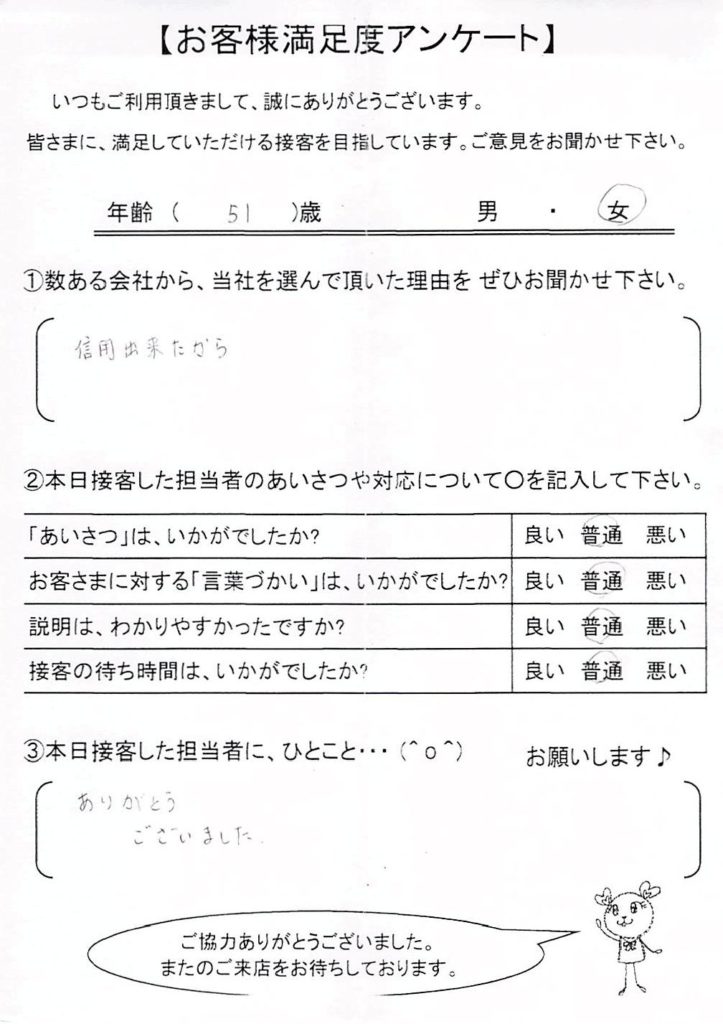 【お客様満足度アンケート】
いつもご利用頂きまして、誠にありがとうございます。
皆さまに、満足していただける接客を目指しています。ご意見をお聞かせ下さい。
年齢（ 51 ）歳 男 ・ 女
①数ある会社から、当社を選んで頂いた理由を ぜひお聞かせ下さい。
信用出来たから
②本日接客した担当者のあいさつや対応について〇を記入して下さい。
「あいさつ」は、いかがでしたか? 良い 普通 悪い
お客さまに対する「言葉づかい」は、いかがでしたか? 良い 普通 悪い
説明は、わかりやすかったですか? 良い 普通 悪い
接客の待ち時間は、いかがでしたか? 良い 普通 悪い
③本日接客した担当者に、ひとこと・・・（^ o ^） お願いします♪
ありがとう
ございました.
ご協力ありがとうございました。
またのご来店をお待ちしております。